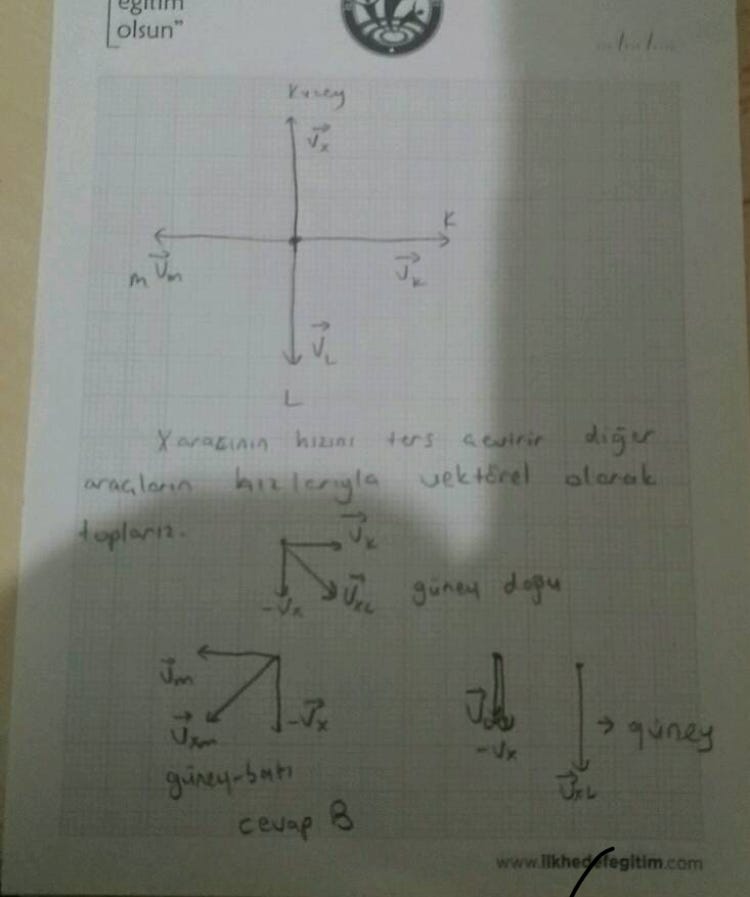 eğitim
olsun"
../../....
Kuzey
Vx
K
m Vm
Vk
VL
L
X aracının hızını ters çevirir diğer
araçların hızlarıyla vektörel olarak
toplarız.
Vk
-Vx VxL güney doğu
Vm
Vxm -Vx
-Vx
güney
VxL
güney-batı
cevap B
www.ilkhedefegitim.com